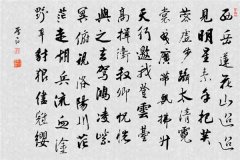 西岳蓮花山迢迢
見明星素手把
芙蓉虛步躡太清霓
裳曳廣帶飄拂升
天行邀我登雲臺
高揖衛叔卿恍恍
與之去駕鴻凌紫
冥俯視洛陽川茫
茫走胡兵流血塗
野草豺狼盡冠纓